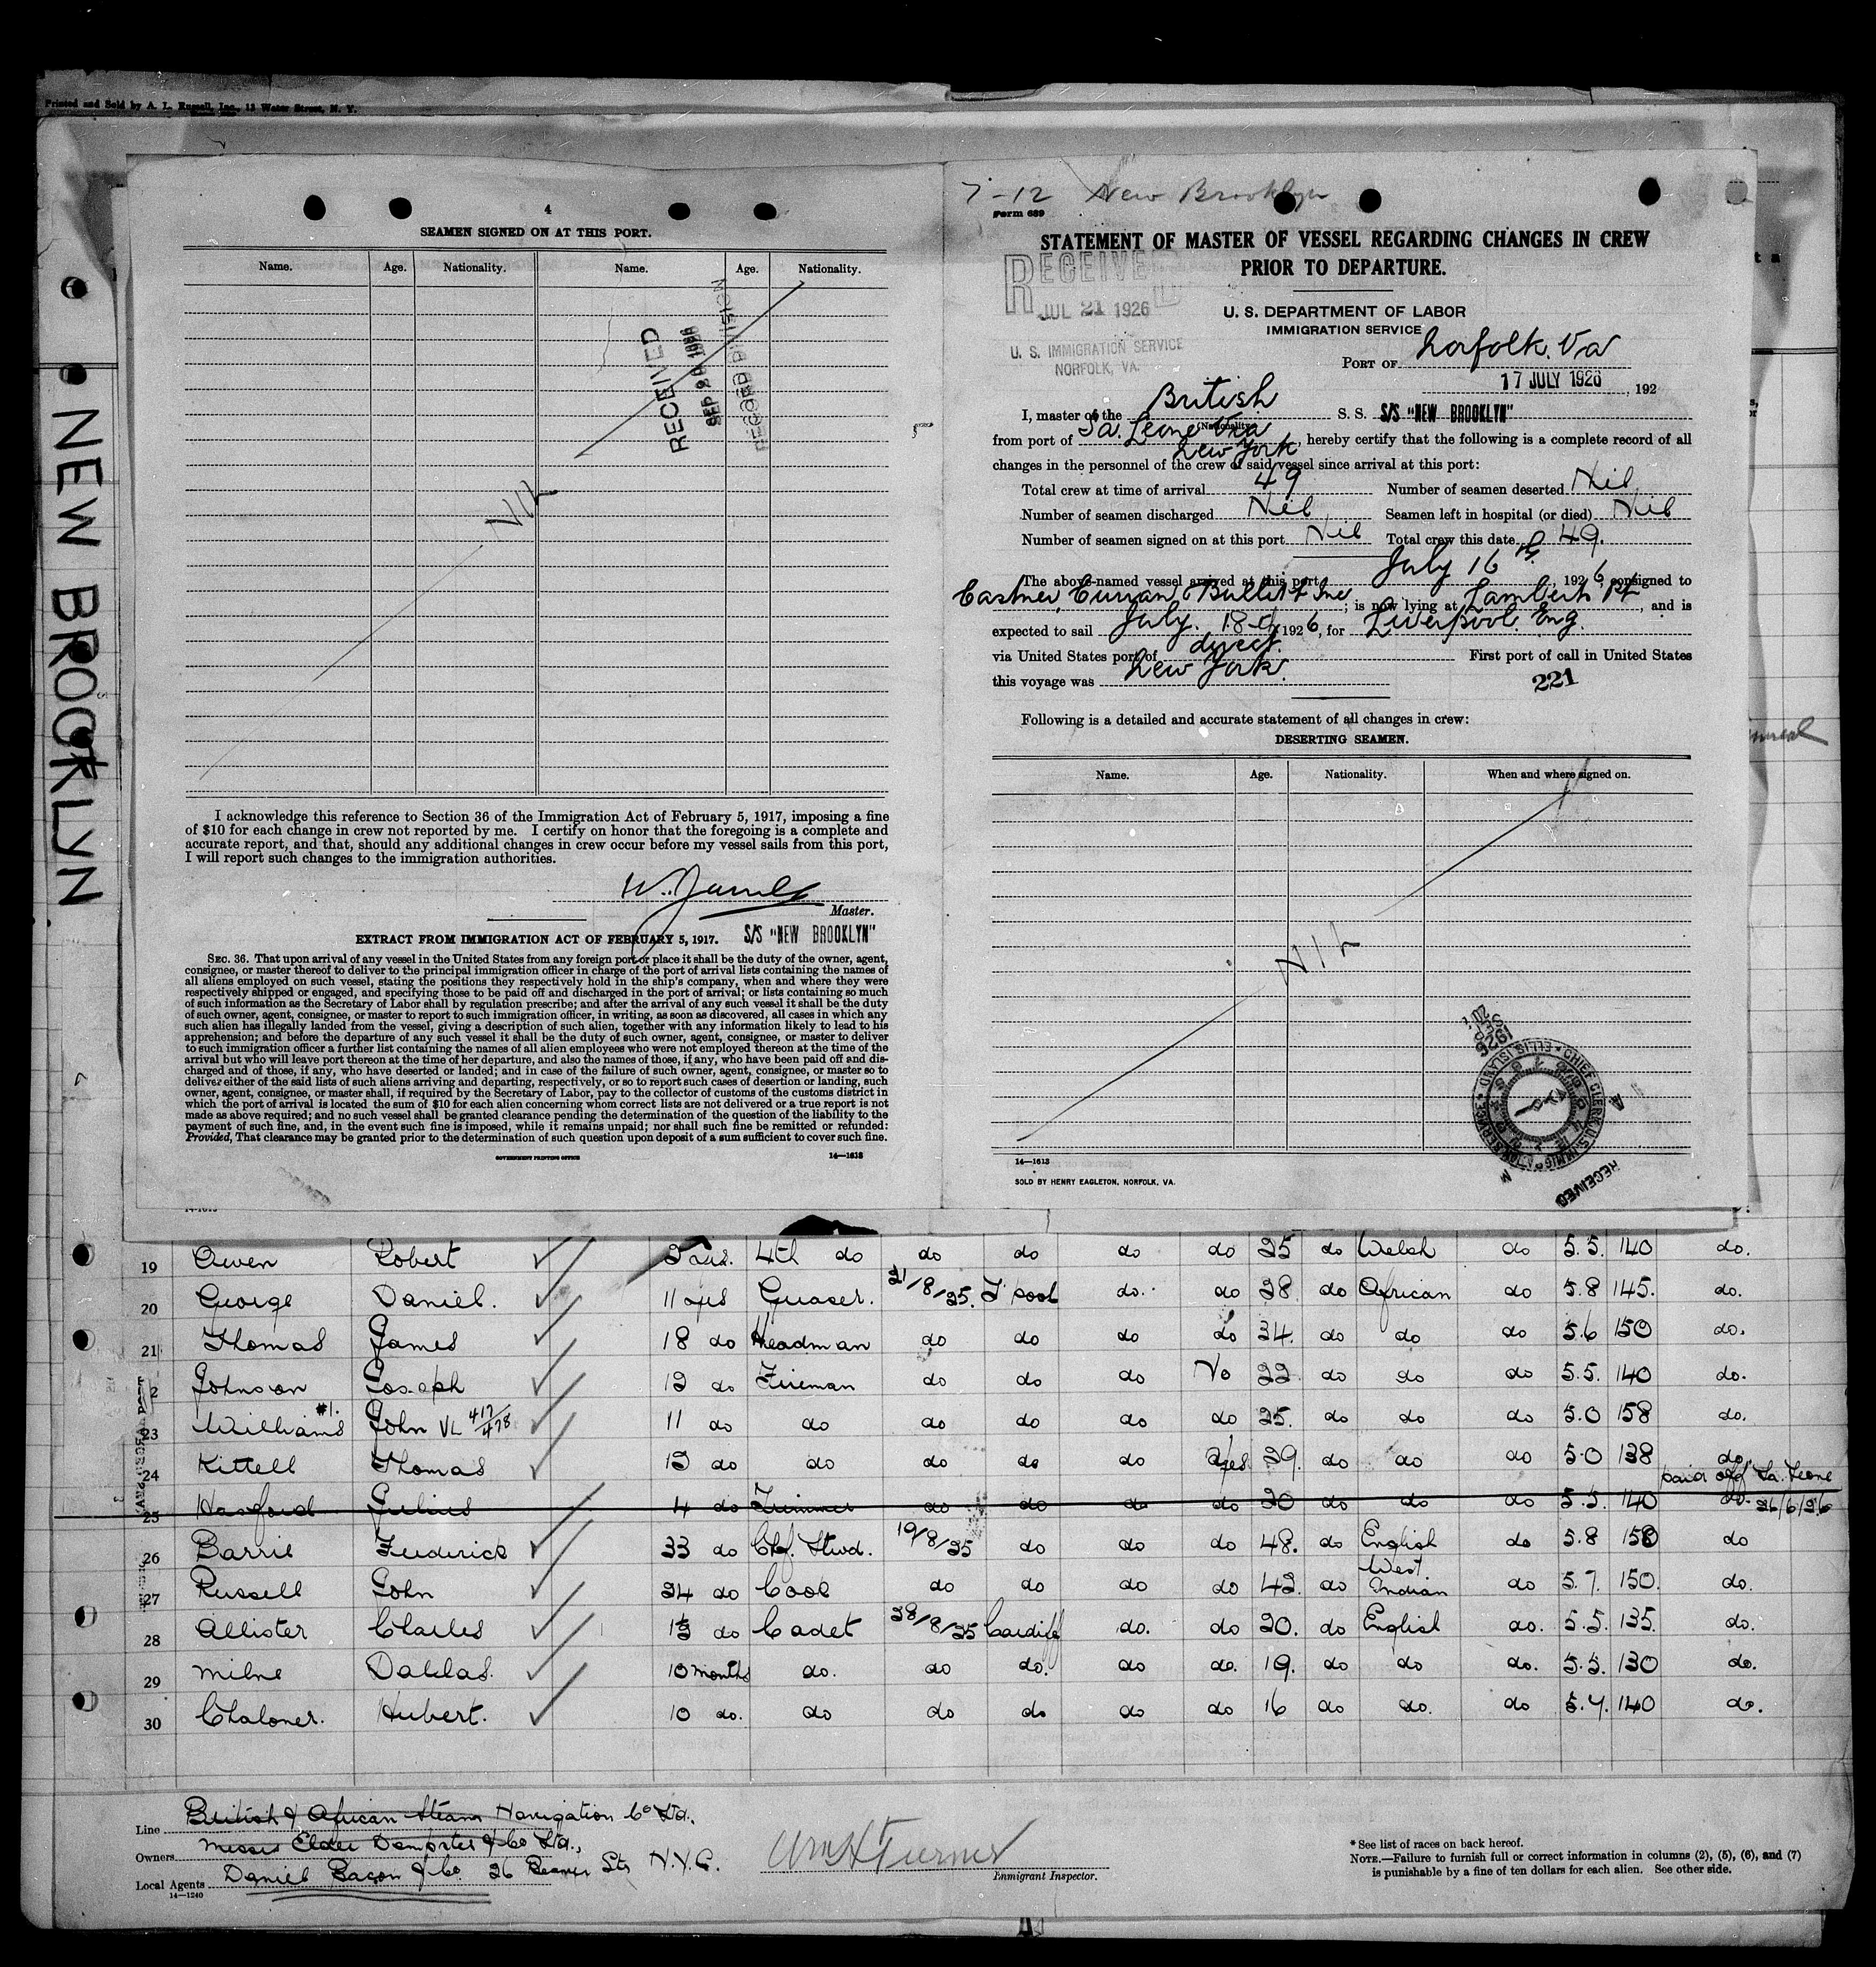 Printed and Sold by A. L. Russell, Inc., 12 Water Street, N. Y.
NEW BROOKLYN
4
SEAMEN SIGNED ON AT THIS PORT.
Name. Age. Nationality. Name. Age. Nationality.
RECEIVED
RECORD DIVISION
NIL
I acknowledge this reference to Section 36 of the Immigration Act of February 5, 1917, imposing a fine
of $10 for each change in crew not reported by me. I certify on honor that the foregoing is a complete and
accurate report, and that, should any additional changes in crew occur before my vessel sails from this port,
I will report such changes to the immigration authorities.
Master.
S/S "NEW BROOKLYN"
EXTRACT FROM IMMIGRATION ACT OF FEBRUARY 5, 1917.
SEC. 36. That upon arrival of any vessel in the United States from any foreign port or place it shall be the duty of the owner, agent,
consignee, or master thereof to deliver to the principal immigration officer in charge of the port of arrival lists containing the names of
all aliens employed on such vessel, stating the positions they respectively hold in the ship's company, when and where they were
respectively shipped or engaged, and specifying those to be paid off and discharged in the port of arrival; or lists containing so much
of such information as the Secretary of Labor shall by regulation prescribe; and after the arrival of any such vessel it shall be the duty
of such owner, agent, consignee, or master to report to such immigration officer, in writing, as soon as discovered, all cases in which any
such alien has illegally landed from the vessel, giving a description of such alien, together with any information likely to lead to his
apprehension; and before the departure of any such vessel it shall be the duty of such owner, agent, consignee, or master to deliver
to such immigration officer a further list containing the names of all alien employees who were not employed thereon at the time of the
arrival but who will leave port thereon at the time of her departure, and also the names of those, if any, who have been paid off and dis-
charged and of those, if any, who have deserted or landed; and in case of the failure of such owner, agent, consignee, or master so to
deliver either of the said lists of such aliens arriving and departing, respectively, or so to report such cases of desertion or landing, such
owner, agent, consignee, or master shall, if required by the Secretary of Labor, pay to the collector of customs of the customs district in
which the port of arrival is located the sum of $10 for each alien concerning whom correct lists are not delivered or a true report is not
made as above required; and no such vessel shall be granted clearance pending the determination of the question of the liability to the
payment of such fine, and, in the event such fine is imposed, while it remains unpaid; nor shall such fine be remitted or refunded:
Provided, That clearance may be granted prior to the determination of such question upon deposit of a sum sufficient to cover such fine.
GOVERNMENT PRINTING OFFICE 14—1613
7-12 New Brooklyn
Form 689
STATEMENT OF MASTER OF VESSEL REGARDING CHANGES IN CREW
PRIOR TO DEPARTURE.
RECEIVED
JUL 21 1926
U. S. IMMIGRATION SERVICE
NORFOLK, VA.
U. S. DEPARTMENT OF LABOR
IMMIGRATION SERVICE
PORT OF Norfolk. Va
17 JULY 1926, 192
I, master of the British S. S. S/S "NEW BROOKLYN"
(Nationality)
from port of Sa. Leone Via New York, hereby certify that the following is a complete record of all
changes in the personnel of the crew of said vessel since arrival at this port:
Total crew at time of arrival 49 Number of seamen deserted Nil
Number of seamen discharged Nil Seamen left in hospital (or died) Nil
Number of seamen signed on at this port Nil Total crew this date 49.
The above-named vessel arrived at this port July 16th, 1926, consigned to
Castner, Curran, & Bullitt Inc; is now lying at Lamberts Pt, and is
expected to sail July. 18th 1926, for Liverpool. Eng.
via United States port of direct. First port of call in United States
this voyage was New York.
221
Following is a detailed and accurate statement of all changes in crew:
DESERTING SEAMEN.
Name. Age. Nationality. When and where signed on.
NIL
14—1613
SOLD BY HENRY EAGLETON, NORFOLK, VA.
CHIEF CLERK, U.S. IMMIGRATION SERVICE ELLIS ISLAND
RECEIVED
19 Owen Robert 4th do do do do do 25 do Welsh do 5.5. 140 do.
20 George Daniel. 11 yrs Greaser. 21/8/25. L'pool do.. do 28. do African do 5.8 145. do.
21 Thomas James 18 do Headman do do do do 34. do do do 5.6 150 do.
22 Johnson Joseph 12 do Fireman do do do No 22 do do do 5.5. 140 do.
23 Williams #1. John VL 417/478 11 do do do do do do 25. do do do 5.0 158 do.
24 Kittell Thomas 12 do do do do do Yes 29. do do do 5.0 138 do.
paid off Sa. Leone
25 Hasford Julius 4 do Trimmer do do do do 20 do do do 5.5. 140 do. 26/6/26
26 Barrie Frederick 33 do Chf. Stwd. 19/8/25 do do do 48. do English do 5.8 150 do
27 Russell John 24 do Cook do do do do 42. do West Indian do 5.7. 150. do.
28 Allister Charles 1½ do Cadet 28/8/25 Cardiff do. do 20. do English do. 5.5. 135. do.
29 Milne Dallas. 10 months do. do do. do do. 19. do do do. 5.5. 130 do.
30 Chaloner. Hubert. 10 do. do do do do do 16 do do. do 5.4. 140 do.
Line British & African Steam Navigation Co Ltd.
Owners Messrs Elder Dempster & Co Ltd.,
Local Agents Daniel Bacon & Co. 26 Beaver Str N.Y.C.
14—1240
Wm H Turner
Immigrant Inspector.
* See list of races on back hereof.
NOTE.—Failure to furnish full or correct information in columns (2), (5), (6), and (7)
is punishable by a fine of ten dollars for each alien. See other side.